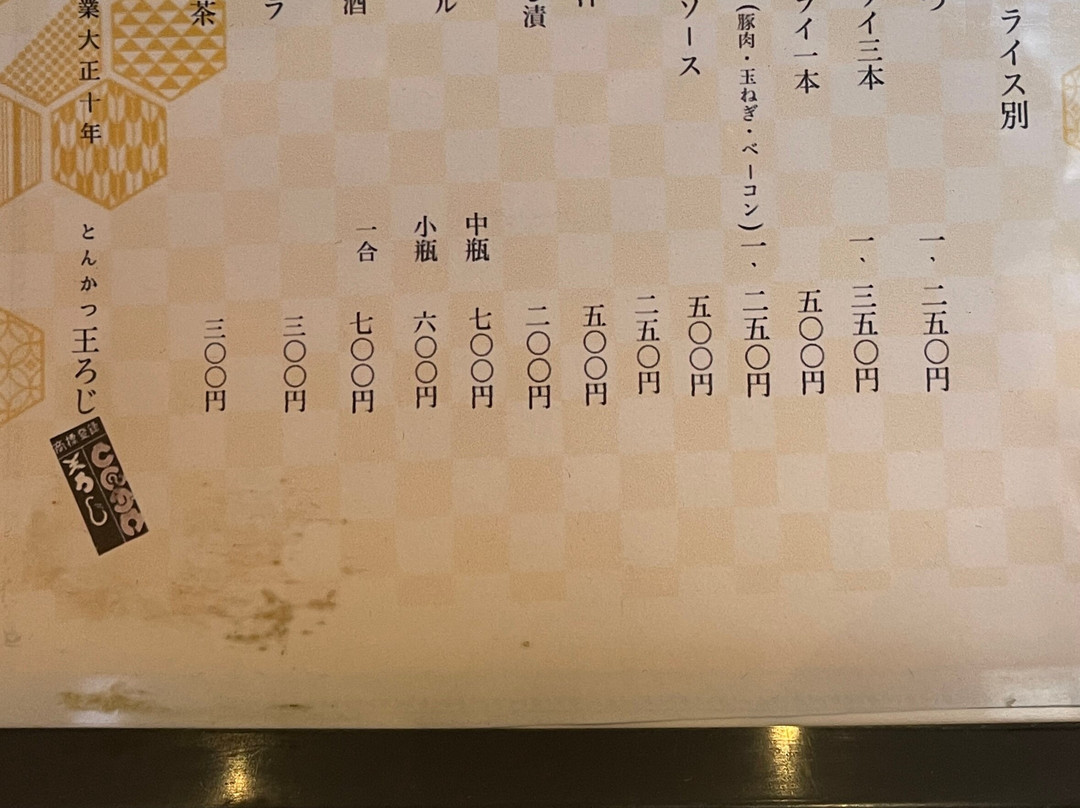 ライス別
一、二五〇円
イ三本 一、三五〇円
イ一本 五〇〇円
(豚肉・玉ねぎ・ベーコン) 一、二五〇円
ソース 五〇〇円
二五〇円
五〇〇円
漬 二〇〇円
中瓶 七〇〇円
ル 小瓶 六〇〇円
酒 一合 七〇〇円
ラ 三〇〇円
茶 三〇〇円
業 大正十年 とんかつ王ろじ
商標登録
とんかつ
王ろじ